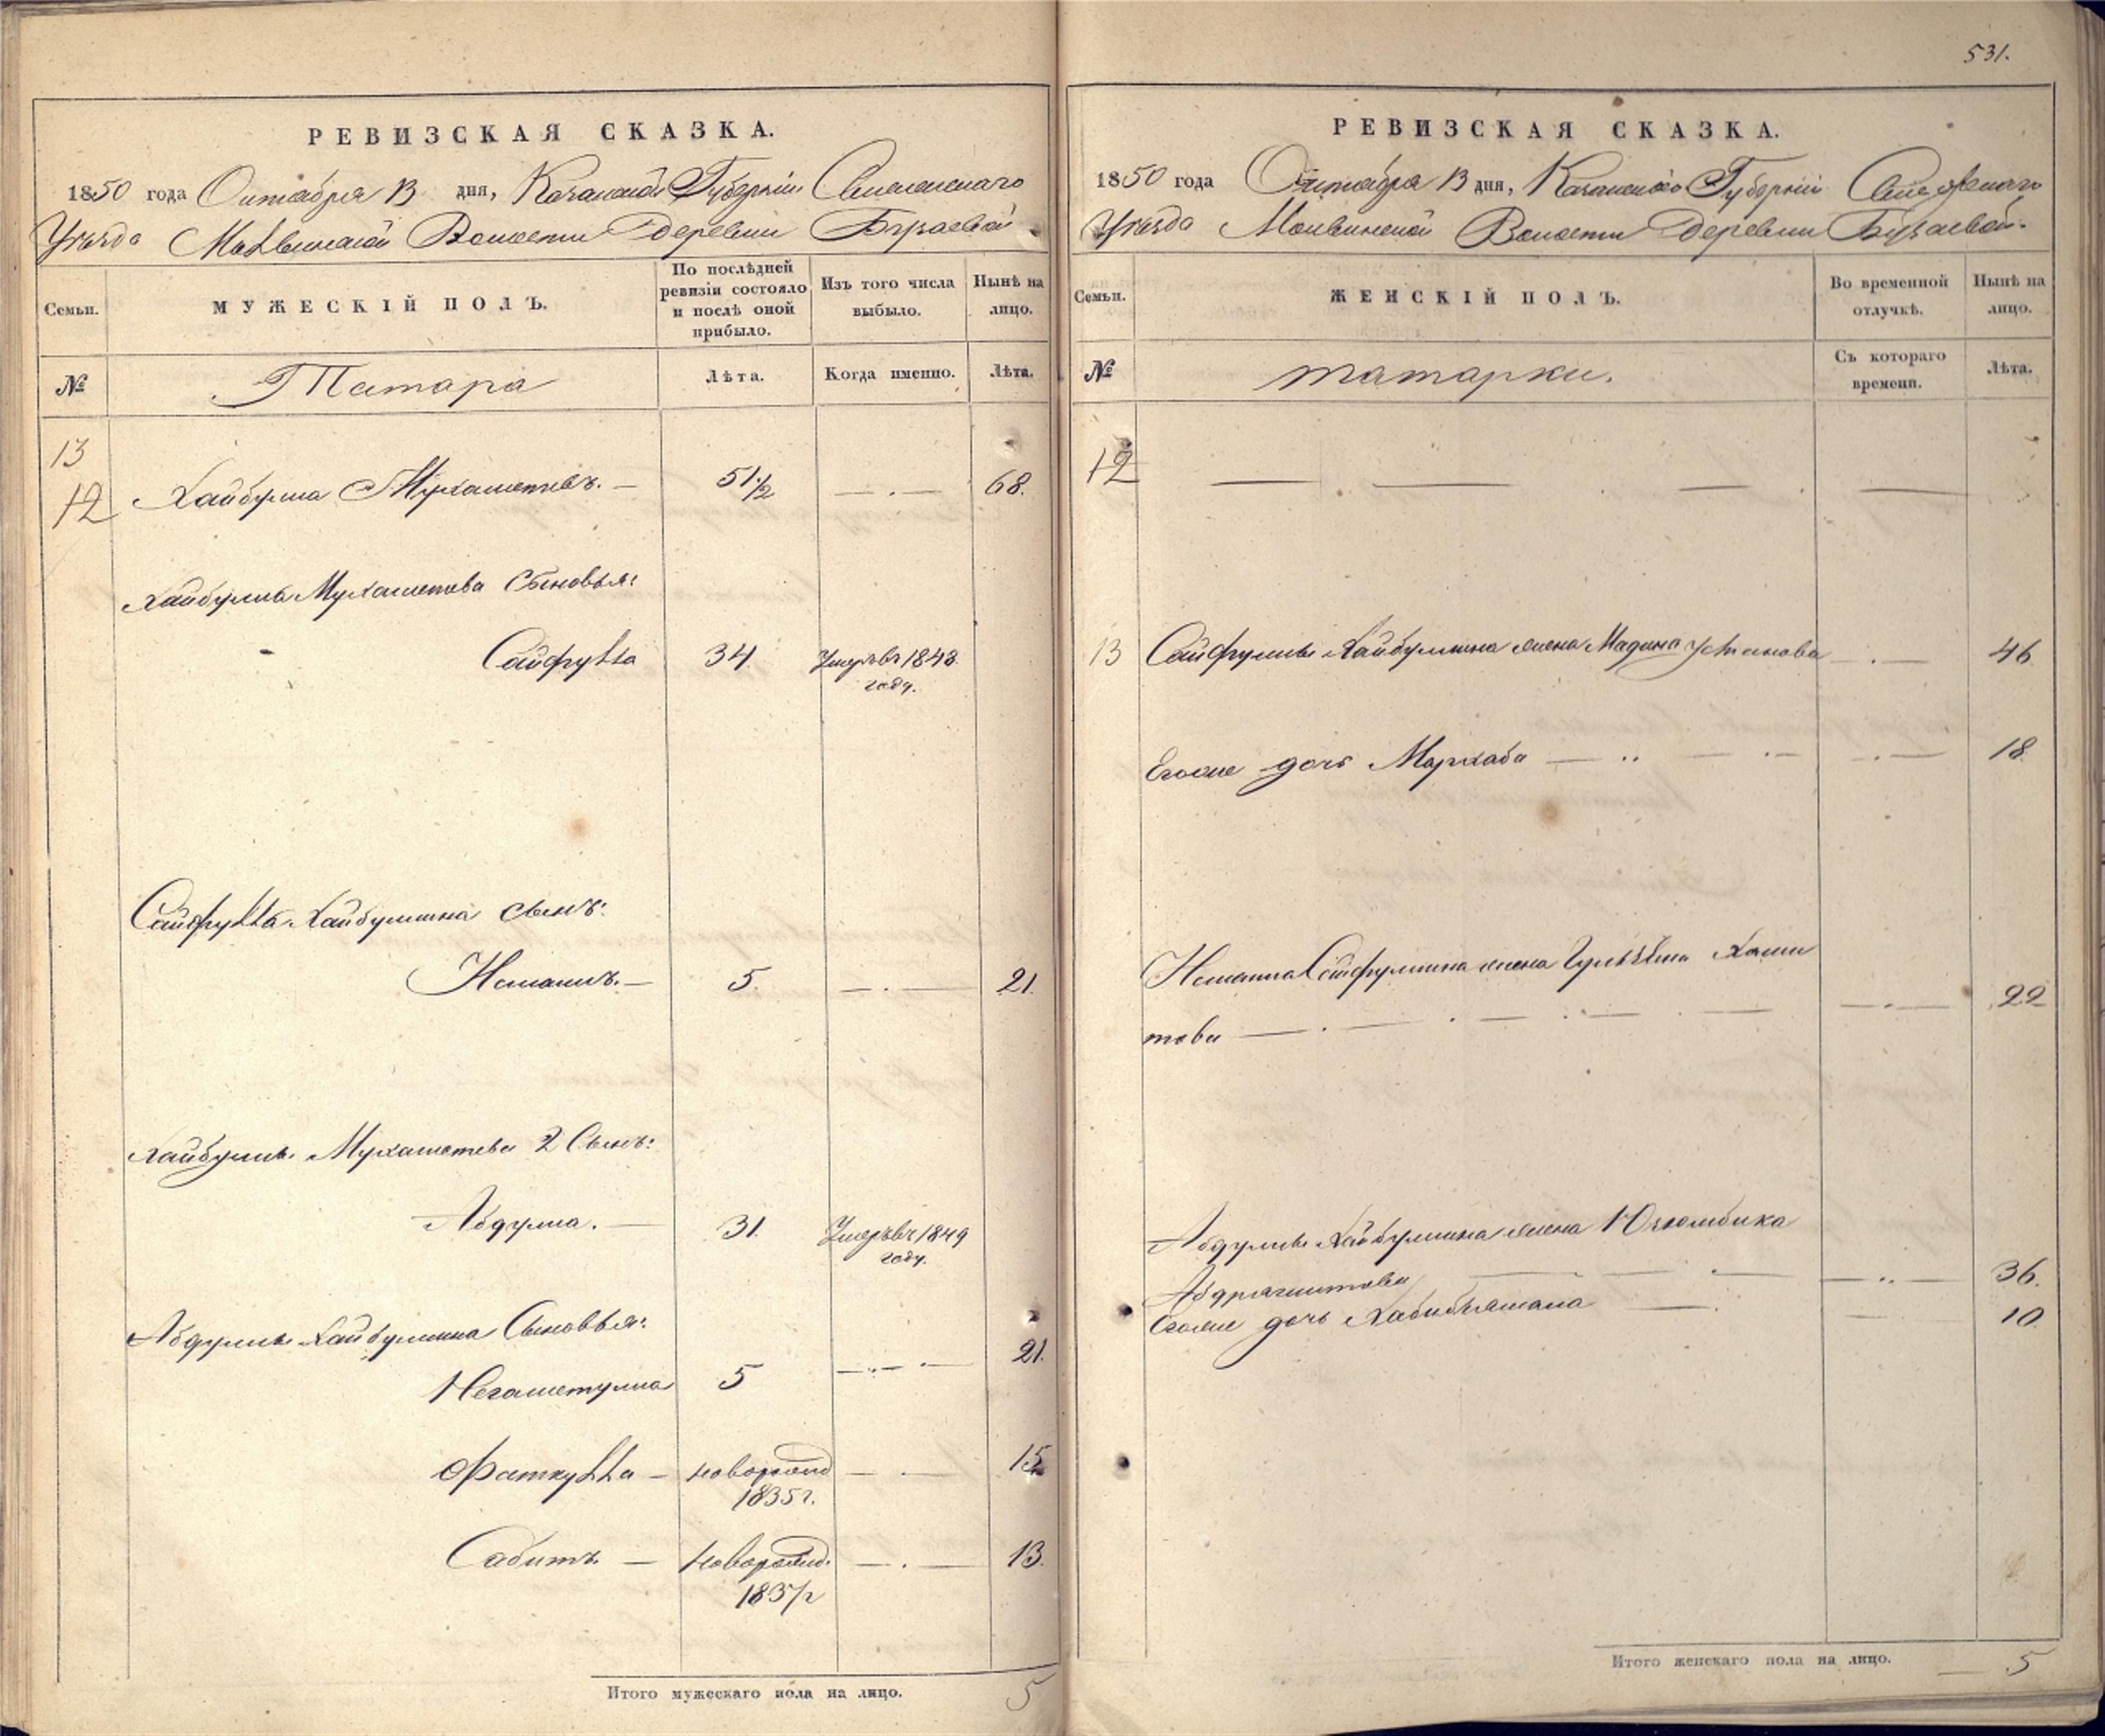 531.
РЕВИЗСКАЯ СКАЗКА.
1850 года Октября 13 дня, Казанской Губернии
Уезда Волости Деревни Бузаевой
Семьи.
МУЖЕСКІЙ ПОЛЪ.
По послѣдней ревизіи состояло и послѣ оной прибыло.
Изъ того числа выбыло.
Нынѣ на лицо.
№
Татара
Лѣта.
Когда именно.
Лѣта.
13
12 Хайбулла Мухаметевъ. — 51 1/2 — . — 68.
Хайбуллы Мухаметева Сыновья:
Сайфулла 34 Умеръ въ 1843
году.
Сайфуллы Хайбуллина сынъ:
Исманъ. — 5. — . — 21.
Хайбуллы Мухаметева 2 Сынъ:
Абдулла. — 31. Умеръ въ 1849
году.
Абдуллы Хайбуллина Сыновья:
Негаметулла 5 — . — 21.
Фаткулла — новорожд — . — 15
1835 г.
Сабитъ — новорожд. — . — 13.
1837 г
Итого мужескаго пола на лицо. 5
РЕВИЗСКАЯ СКАЗКА.
1850 года Октября 13 дня, Казанской Губерніи
Уезда Волости Деревни Бузаевой.
Семьи.
ЖЕНСКІЙ ПОЛЪ.
Во временной отлучкѣ.
Нынѣ на лицо.
№
татарки.
Съ котораго времени.
Лѣта.
12
13 Сайфуллы Хайбуллина жена Мадина Усманова — . — 46
Егоже дочь Мархаба — . — 18
Исмана Сайфуллина жена Хами
това — . — 22
Абдуллы Хайбуллина жена Югюмбика
Абдрашитова — . — 36.
Егоже дочь Хабибъямала — 10
Итого женскаго пола на лицо. 5